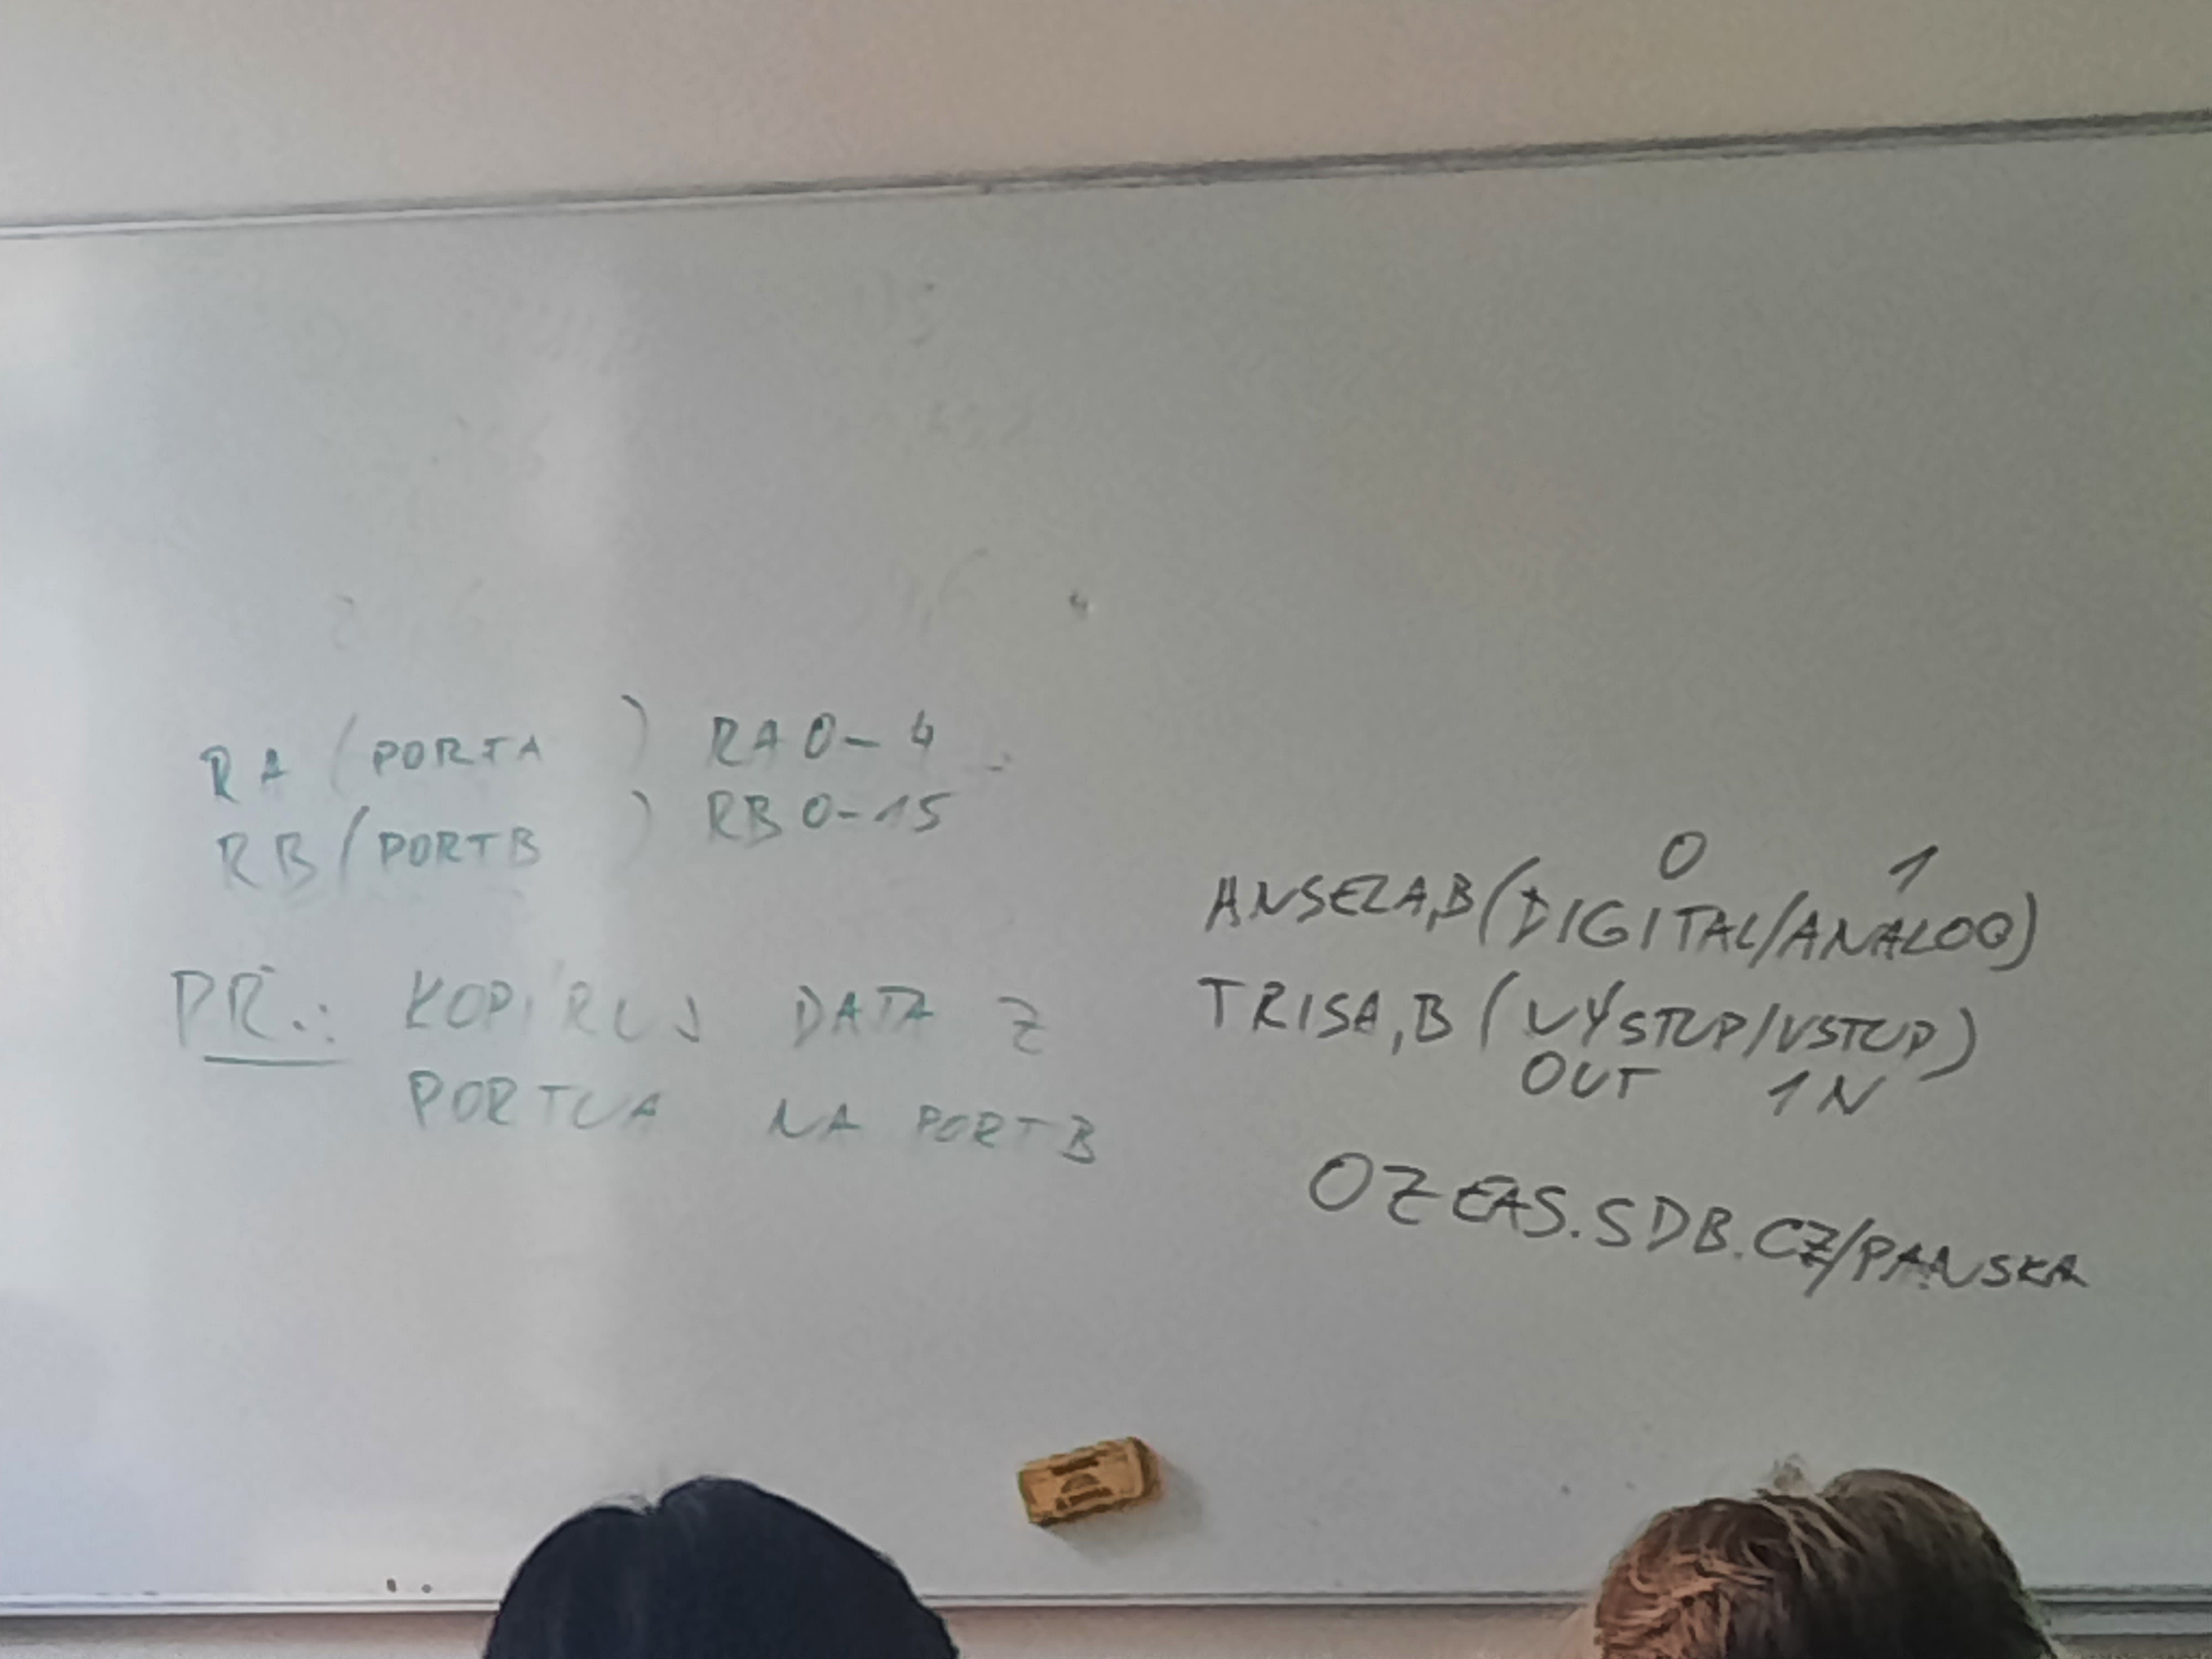 RA (PORTA ) RA0-4
RB (PORTB ) RB0-15
PŘ.: KOPÍRUJ DATA Z
PORTUA NA PORTB
0 1
ANSELA,B (DIGITAL/ANALOG)
TRISA,B (VÝSTUP/VSTUP)
OUT IN
OZEAS.SDB.CZ/PANSKA